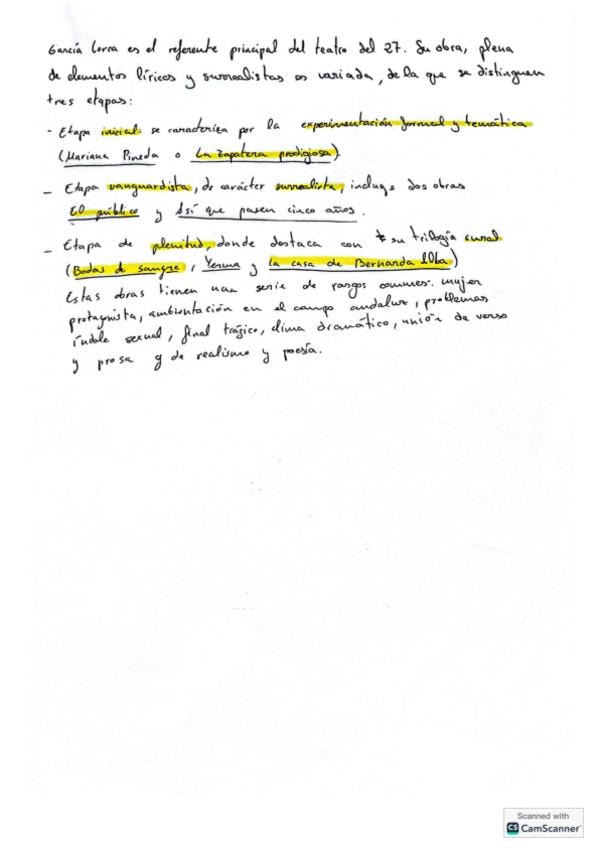 García Lorca es el referente principal del teatro del 27. Su obra, plena
de elementos líricos y surrealistas es variada, de la que se distinguen
tres etapas:
- Etapa inicial: se caracteriza por la experimentación formal y temática
(Mariana Pineda o La Zapatera prodigiosa)
- Etapa vanguardista, de carácter surrealista, incluye dos obras
El público y Así que pasen cinco años.
- Etapa de plenitud, donde destaca con su trilogía rural
(Bodas de sangre, Yerma y La casa de Bernarda Alba)
Estas obras tienen una serie de rasgos comunes: mujer
protagnista, ambientación en el campo andaluz, problemas
índole sexual, final trágico, clima dramático, unión de verso
y prosa y de realismo y poesía.
Scanned with
CS CamScanner